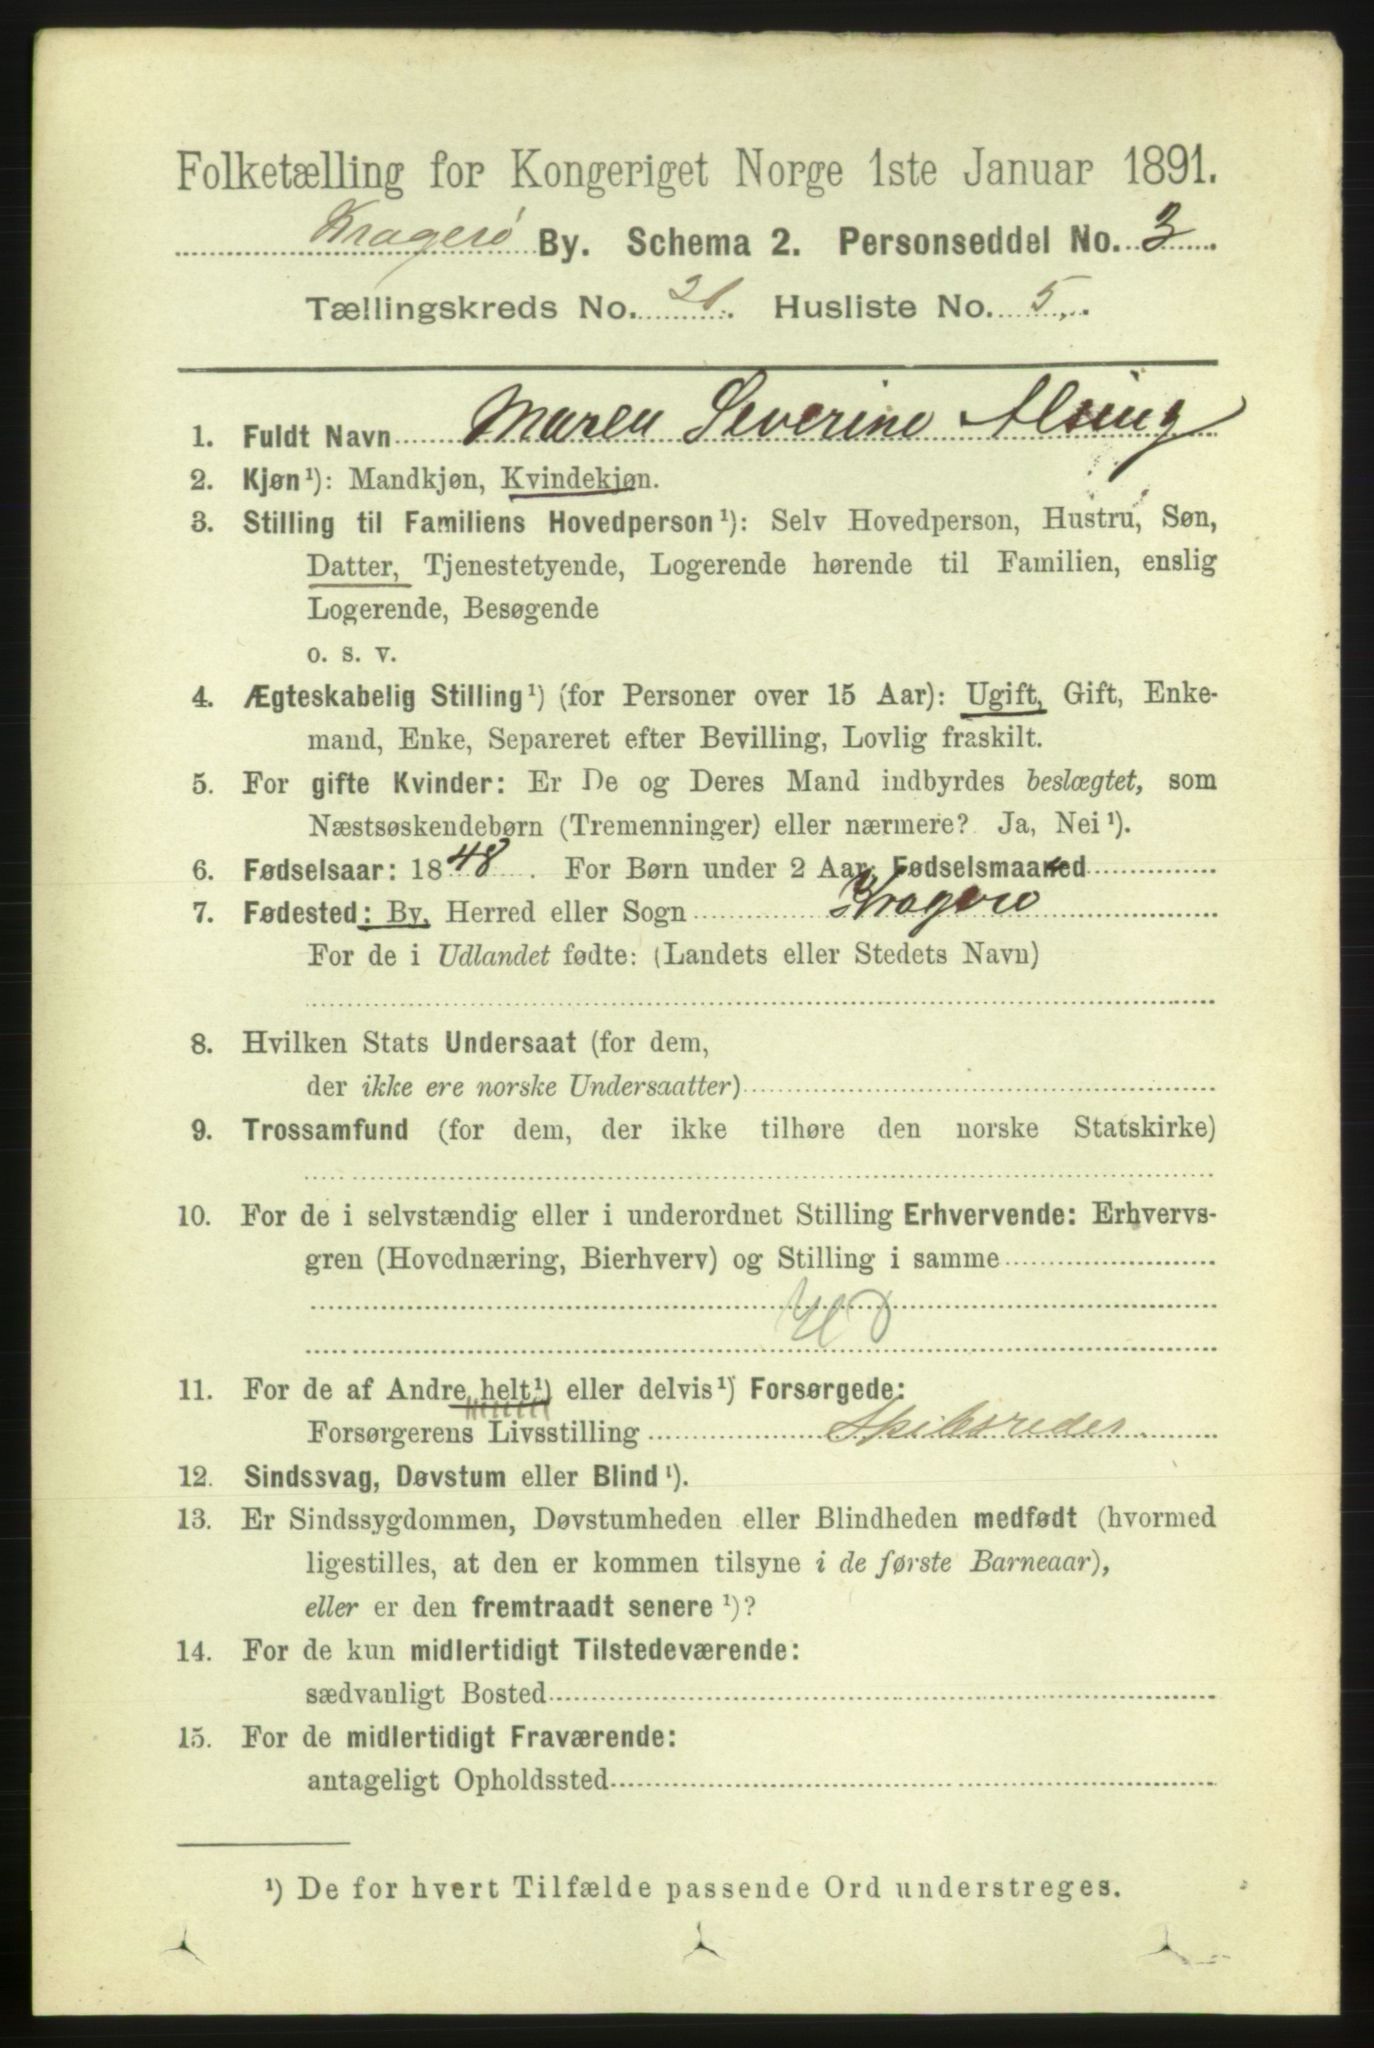 Folketælling for Kongeriget Norge 1ste Januar 1891.
Kragerø By. Schema 2. Personseddel No. 3.
Tællingskreds No. 21. Husliste No. 5.
1. Fuldt Navn Maren Severine Alsing
2. Kjøn¹): Mandkjøn, Kvindekjøn.
3. Stilling til Familiens Hovedperson¹): Selv Hovedperson, Hustru, Søn,
Datter, Tjenestetyende, Logerende hørende til Familien, enslig
Logerende, Besøgende
o. s. v.
4. Ægteskabelig Stilling¹) (for Personer over 15 Aar): Ugift, Gift, Enke-
mand, Enke, Separeret efter Bevilling, Lovlig fraskilt.
5. For gifte Kvinder: Er De og Deres Mand indbyrdes beslægtet, som
Næstsøskendebørn (Tremenninger) eller nærmere? Ja, Nei¹).
6. Fødselsaar: 1848. For Børn under 2 Aar, Fødselsmaaned
7. Fødested: By, Herred eller Sogn Kragerø
For de i Udlandet fødte: (Landets eller Stedets Navn)
8. Hvilken Stats Undersaat (for dem,
der ikke ere norske Undersaatter)
9. Trossamfund (for dem, der ikke tilhøre den norske Statskirke)
10. For de i selvstændig eller i underordnet Stilling Erhvervende: Erhvervs-
gren (Hovednæring, Bierhverv) og Stilling i samme
11. For de af Andre helt¹) eller delvis¹) Forsørgede:
Forsørgerens Livsstilling Skibsreder.
12. Sindssvag, Døvstum eller Blind¹).
13. Er Sindssygdommen, Døvstumheden eller Blindheden medfødt (hvormed
ligestilles, at den er kommen tilsyne i de første Barneaar),
eller er den fremtraadt senere¹)?
14. For de kun midlertidigt Tilstedeværende:
sædvanligt Bosted
15. For de midlertidigt Fraværende:
antageligt Opholdssted
¹) De for hvert Tilfælde passende Ord understreges.